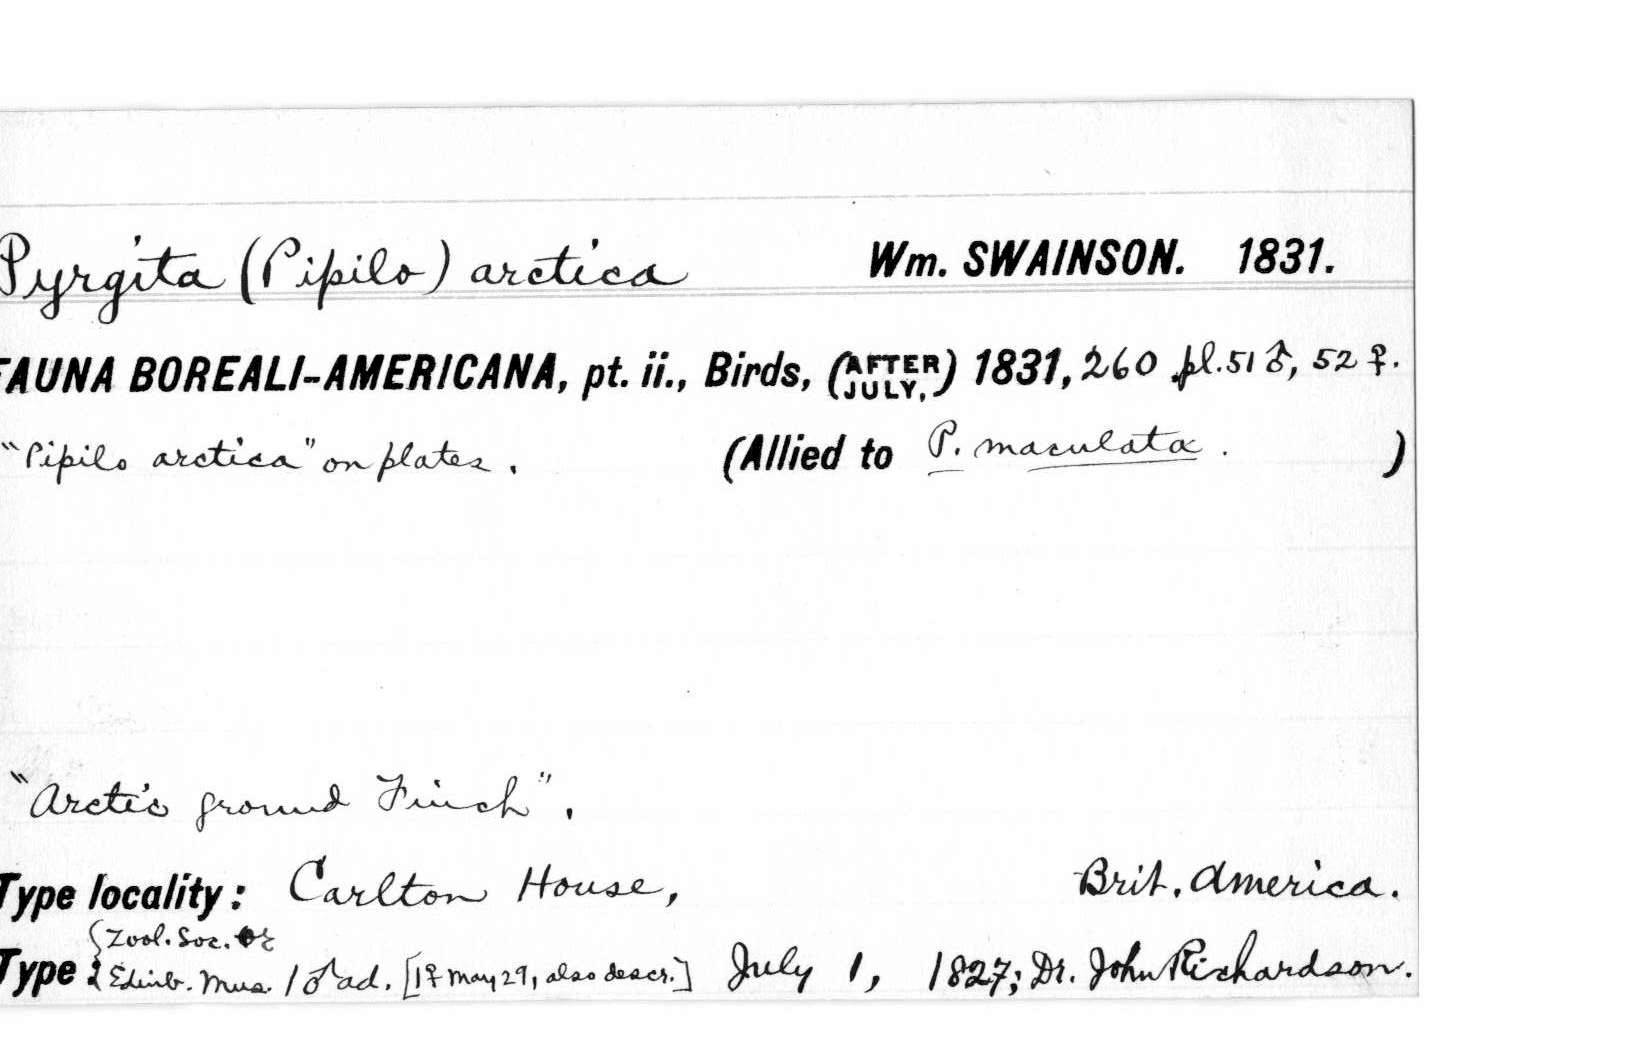 Pyrgita (Pipilo) arctica Wm. SWAINSON. 1831.
FAUNA BOREALI-AMERICANA, pt. ii., Birds, (AFTER JULY,) 1831, 260 pl. 51 ♂, 52 ♀.
"Pipilo arctica" on plates. (Allied to P. maculata. )
"Arctic ground Finch".
Type locality: Carlton House, Brit. America.
{Zool. Soc. or
Type: Edinb. Mus. 1 ♂ ad. [1 ♀ May 29, also descr.] July 1, 1827; Dr. John Richardson.